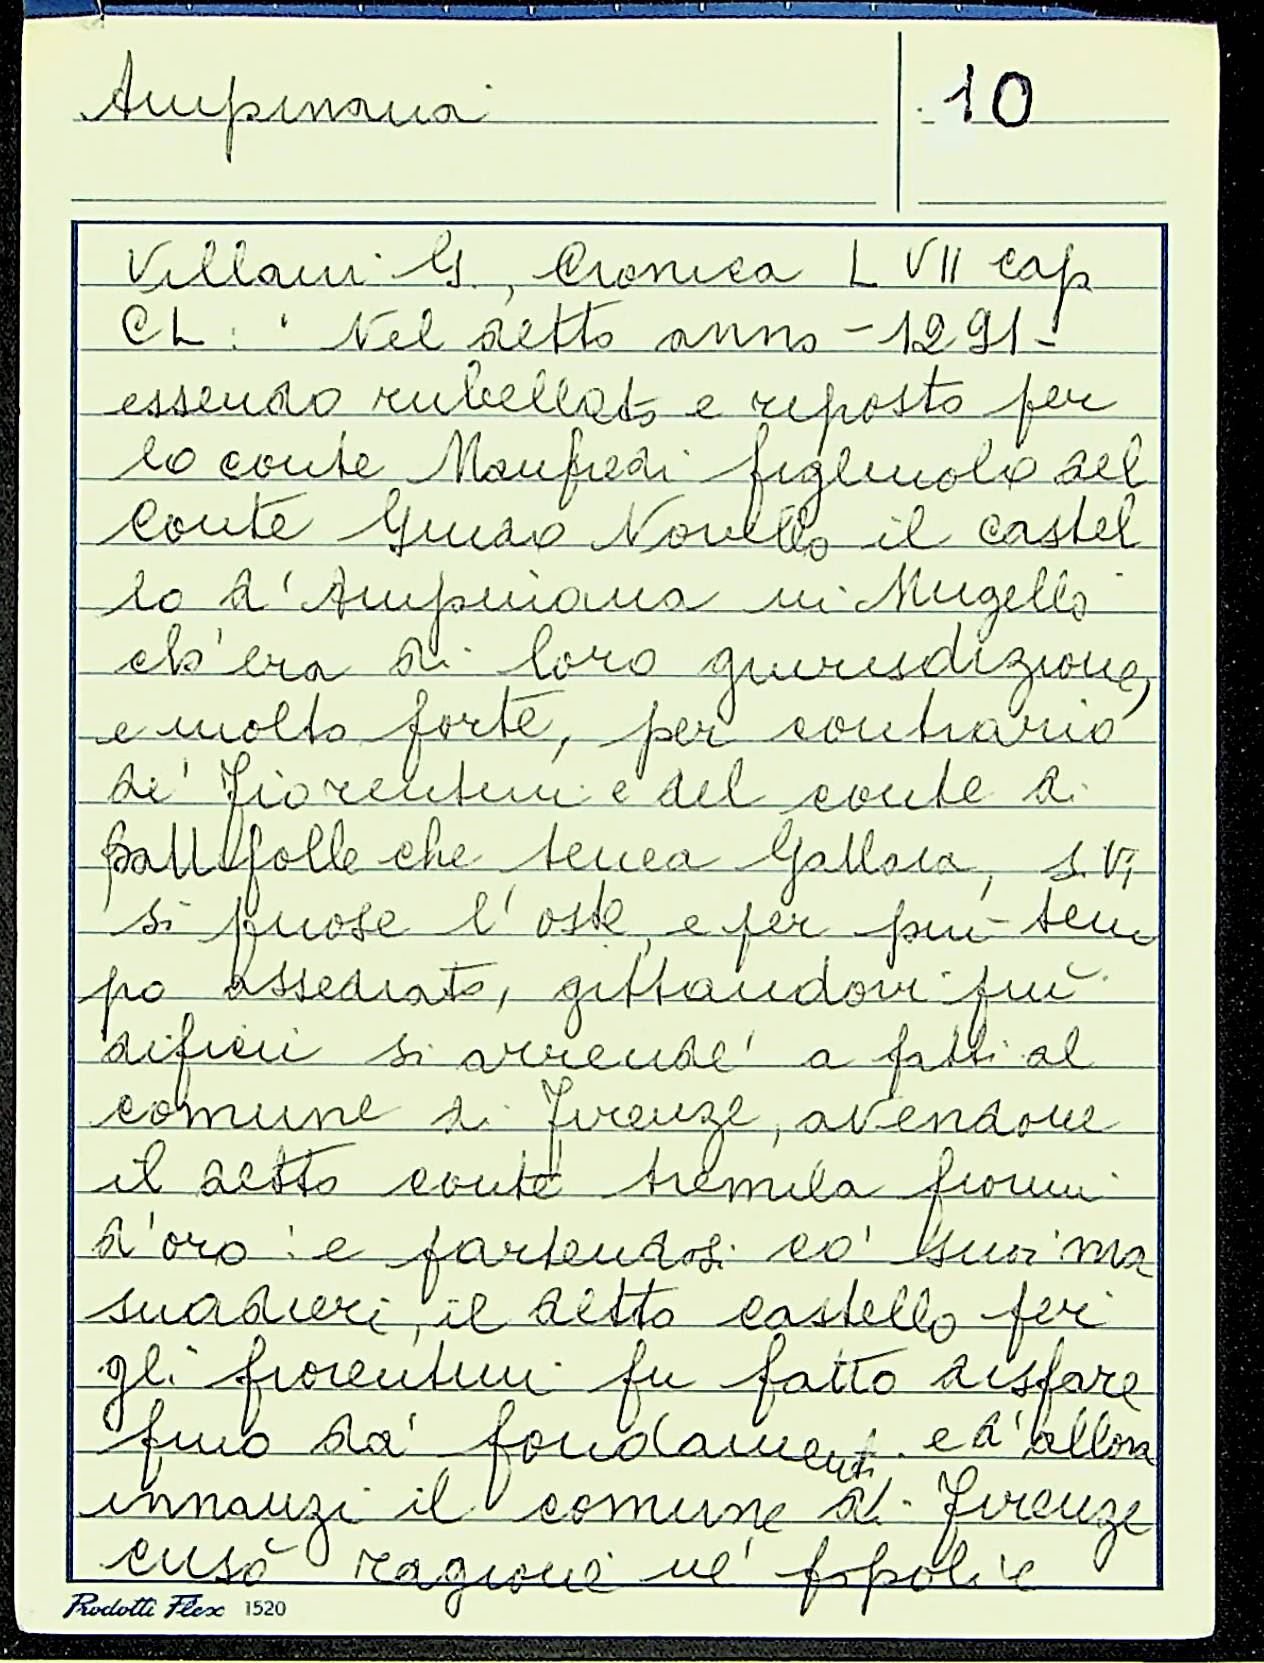 Ampinana
10
Villani G., Cronica L VII cap
CL : " Nel detto anno - 1291 -
essendo rubellato e riposto per
lo conte Manfredi figliuolo del
Conte Guido Novello il castel
lo d'Ampiniana in Mugello
ch'era di loro giurisdizione,
e molto forte, per contrario
de' Fiorentini e del conte di
Battifolle che tenea Gattaia, s. Vi
si puose l'oste, e per più tem
po assediato, gittandovi più
difici si arrendé a patti al
comune di Firenze, avendone
il detto conte tremila fiorini
d'oro : e partendosi co' suoi ma
snadieri, il detto castello per
gli fiorentini fu fatto disfare
fino da' fondamenti. e d'allora
innanzi il comune di Firenze
cusò ragione ne' popoli e
Prodotti Flex 1520